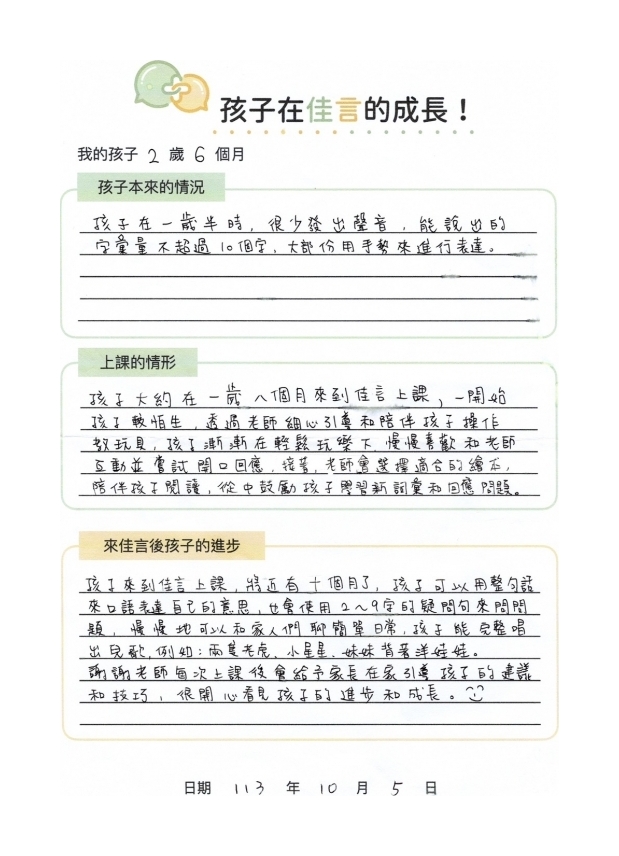 孩子在佳言的成長！
我的孩子 2 歲 6 個月
孩子本來的情況
孩子在一歲半時，很少發出聲音，能說出的
字彙量不超過10個字，大部份用手勢來進行表達。
上課的情形
孩子大約在一歲八個月來到佳言上課，一開始
孩子較怕生，透過老師細心引導和陪伴孩子操作
教玩具，孩子漸漸在輕鬆玩樂下，慢慢喜歡和老師
互動並嘗試開口回應，接著，老師會選擇適合的繪本，
陪伴孩子閱讀，從中鼓勵孩子學習新詞彙和回應問題。
來佳言後孩子的進步
孩子來到佳言上課，將近有十個月了，孩子可以用整句話
來口語表達自己的意思，也會使用2~9字的疑問句來問問
題，慢慢地可以和家人們聊簡單日常，孩子能完整唱
出兒歌，例如：兩隻老虎、小星星、妹妹背著洋娃娃。
謝謝老師每次上課後會給予家長在家引導孩子的建議
和技巧，很開心看見孩子的進步和成長。
日期 113 年 10 月 5 日